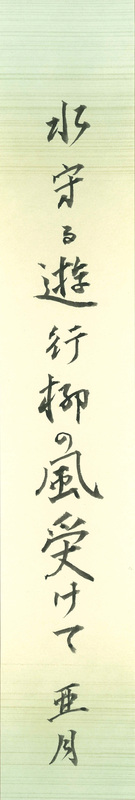 水守る遊行柳の風受けて 亜月